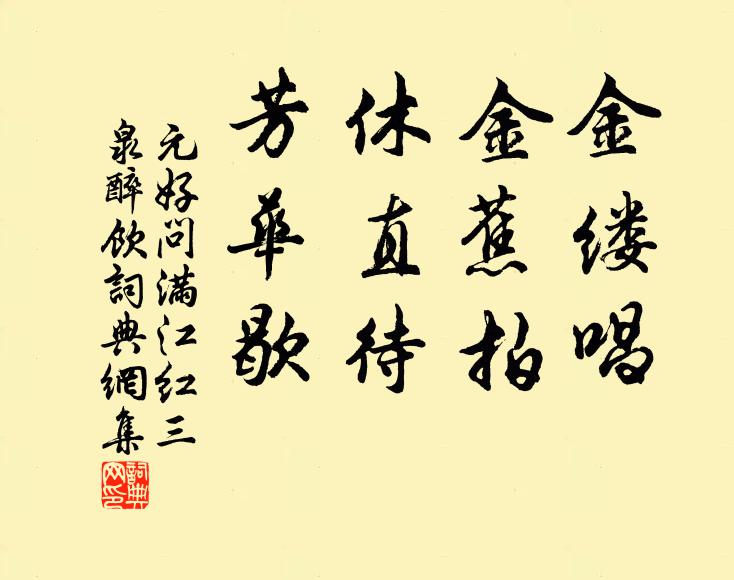 金缕唱
金蕉拍
休直待
芳華歇
元好问满江红三
泉醉饮詞典網集
詞典网印